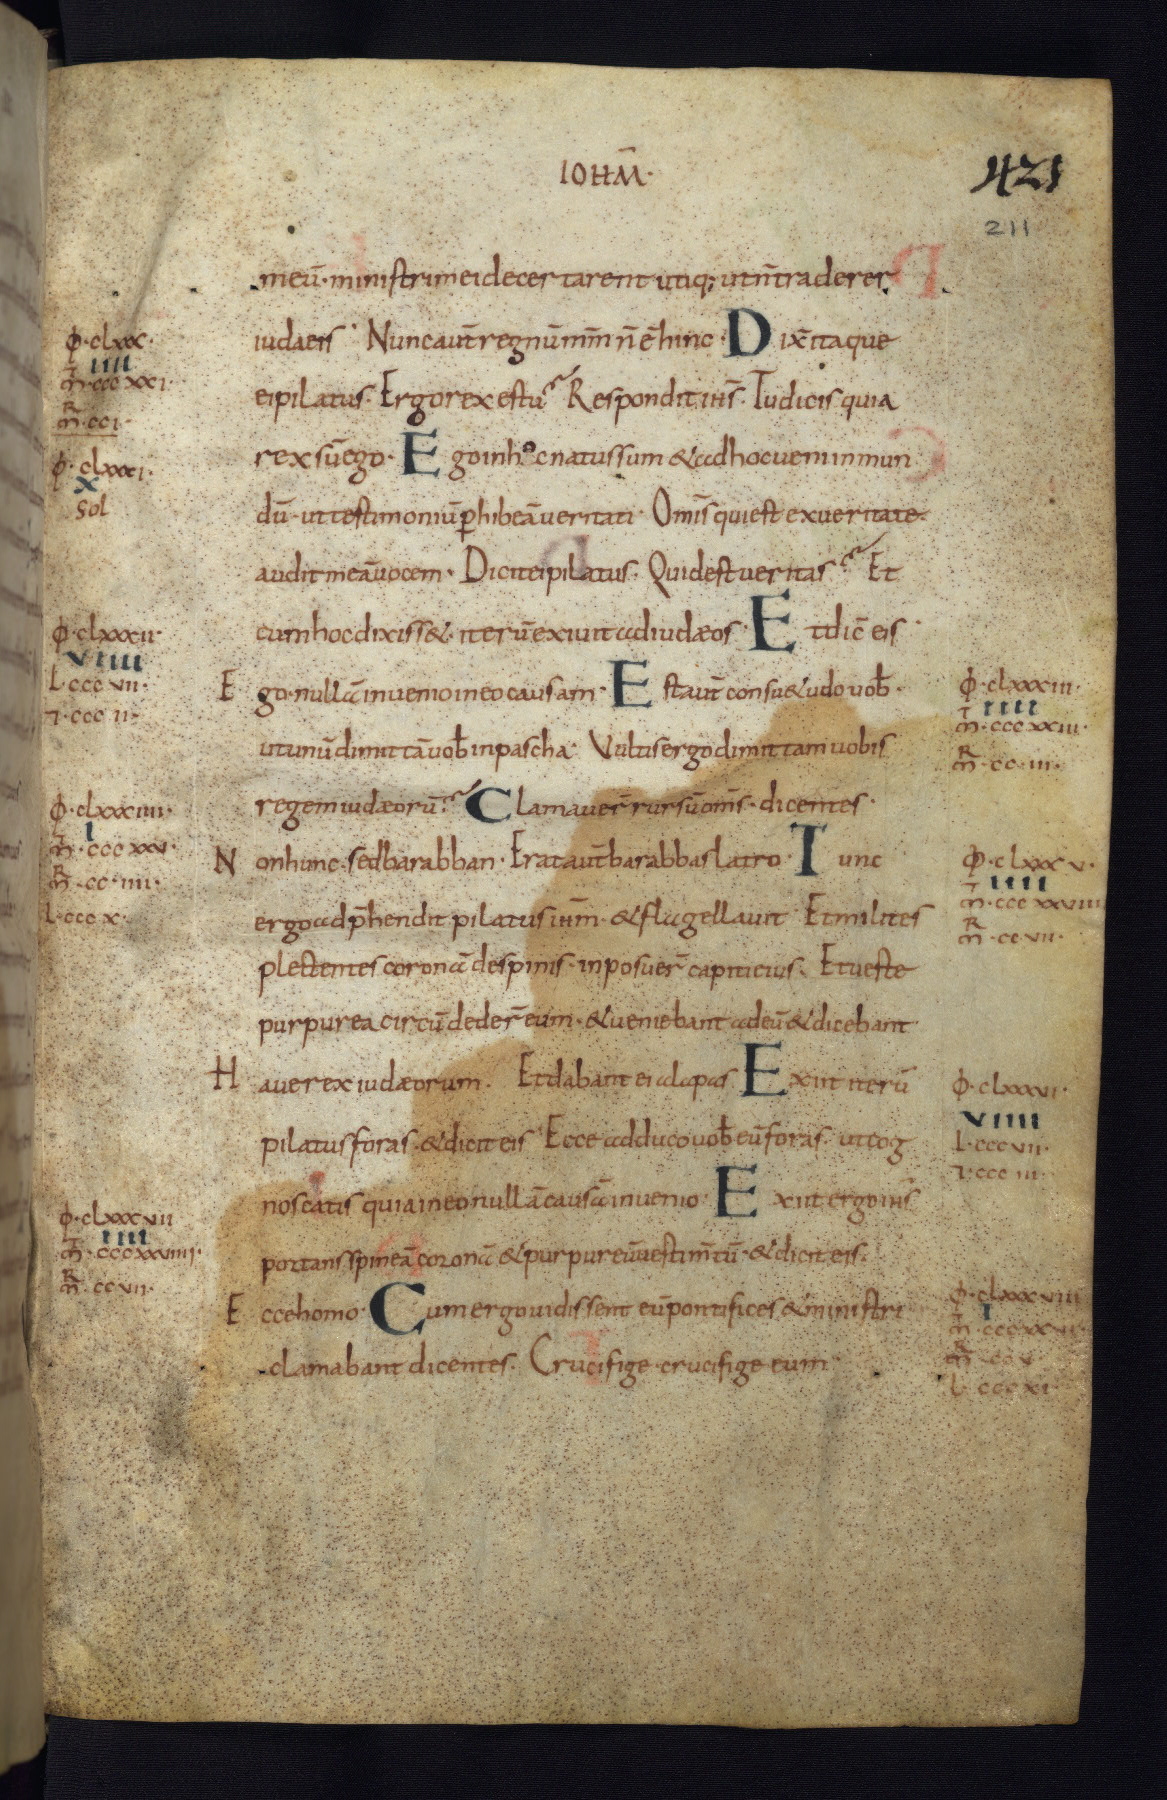 IOHM̄·
421
211
meū· ministri mei decertarent utiq; ut ñ traderer
iudaeis· Nunc aut̄ regnū mm̄ ñ ē hinc· Dix̄ itaque
ei pilatus· Ergo rex es tu? Respondit ih̄s· Tu dicis quia
rex sū ego· Ego in hoc natus sum & ad hoc ueni in mun
dū· ut testimoniū phibeā ueritati· Om̄s qui est ex ueritate·
audit meā uocem· Dicit ei pilatus· Quid est ueritas? Et
cum hoc dixiss&· iterū exiuit ad iudæos· Et dic̄ eis
Ego· nullā inuenio in eo causam· Est aut̄ consu&udo uob̄·
ut unū dimittā uob̄ in pascha· Vultis ergo dimittam uobis
regem iudæorū? Clamauer̄ rursū om̄s· dicentes·
Non hunc· sed barabban· Erat aut̄ barabbas latro· Tunc
ergo adp̄hendit pilatus ih̄m· & flagellauit· Et milites
plectentes coronā de spinis· inposuer̄ capiti eius· Et ueste
purpurea circū deder̄ eum· & ueniebant ad eū & dicebant
Haue rex iudæorum· Et dabant ei alapas· Exiit iterū
pilatus foras· & dicit eis· Ecce adduco uob̄ eū foras· ut cog
noscatis quia in eo nullā causā inuenio· Exiit ergo ih̄s
portans spineā coronā & purpureū uestim̄tū· & dicit eis·
Ecce homo· Cum ergo uidissent eū pontifices & ministri
clamabant dicentes· Crucifige· crucifige eum·
φ·clxxx·
IIII
m̄·cccxxi·
m̄·cci·
φ·clxxxi·
X
Sol
φ·clxxxii·
VIIII
L·cccvii·
ɿ·cccii·
φ·clxxxiiii·
I
m̄·cccxxv·
m̄·cc·iiii·
L·cccx·
φ·clxxxvii
IIII
m̄·cccxxviiii·
m̄·ccvii·
φ·clxxxiii·
IIII
m̄·cccxxiii·
m̄·cc·iii·
φ·clxxxv·
IIII
m̄·cccxxviiii
m̄·ccvii·
φ·clxxxvi·
VIIII
L·cccvii·
ɿ·ccc iii·
φ·clxxxviii
I
m̄·ccv·
L·cccxi·